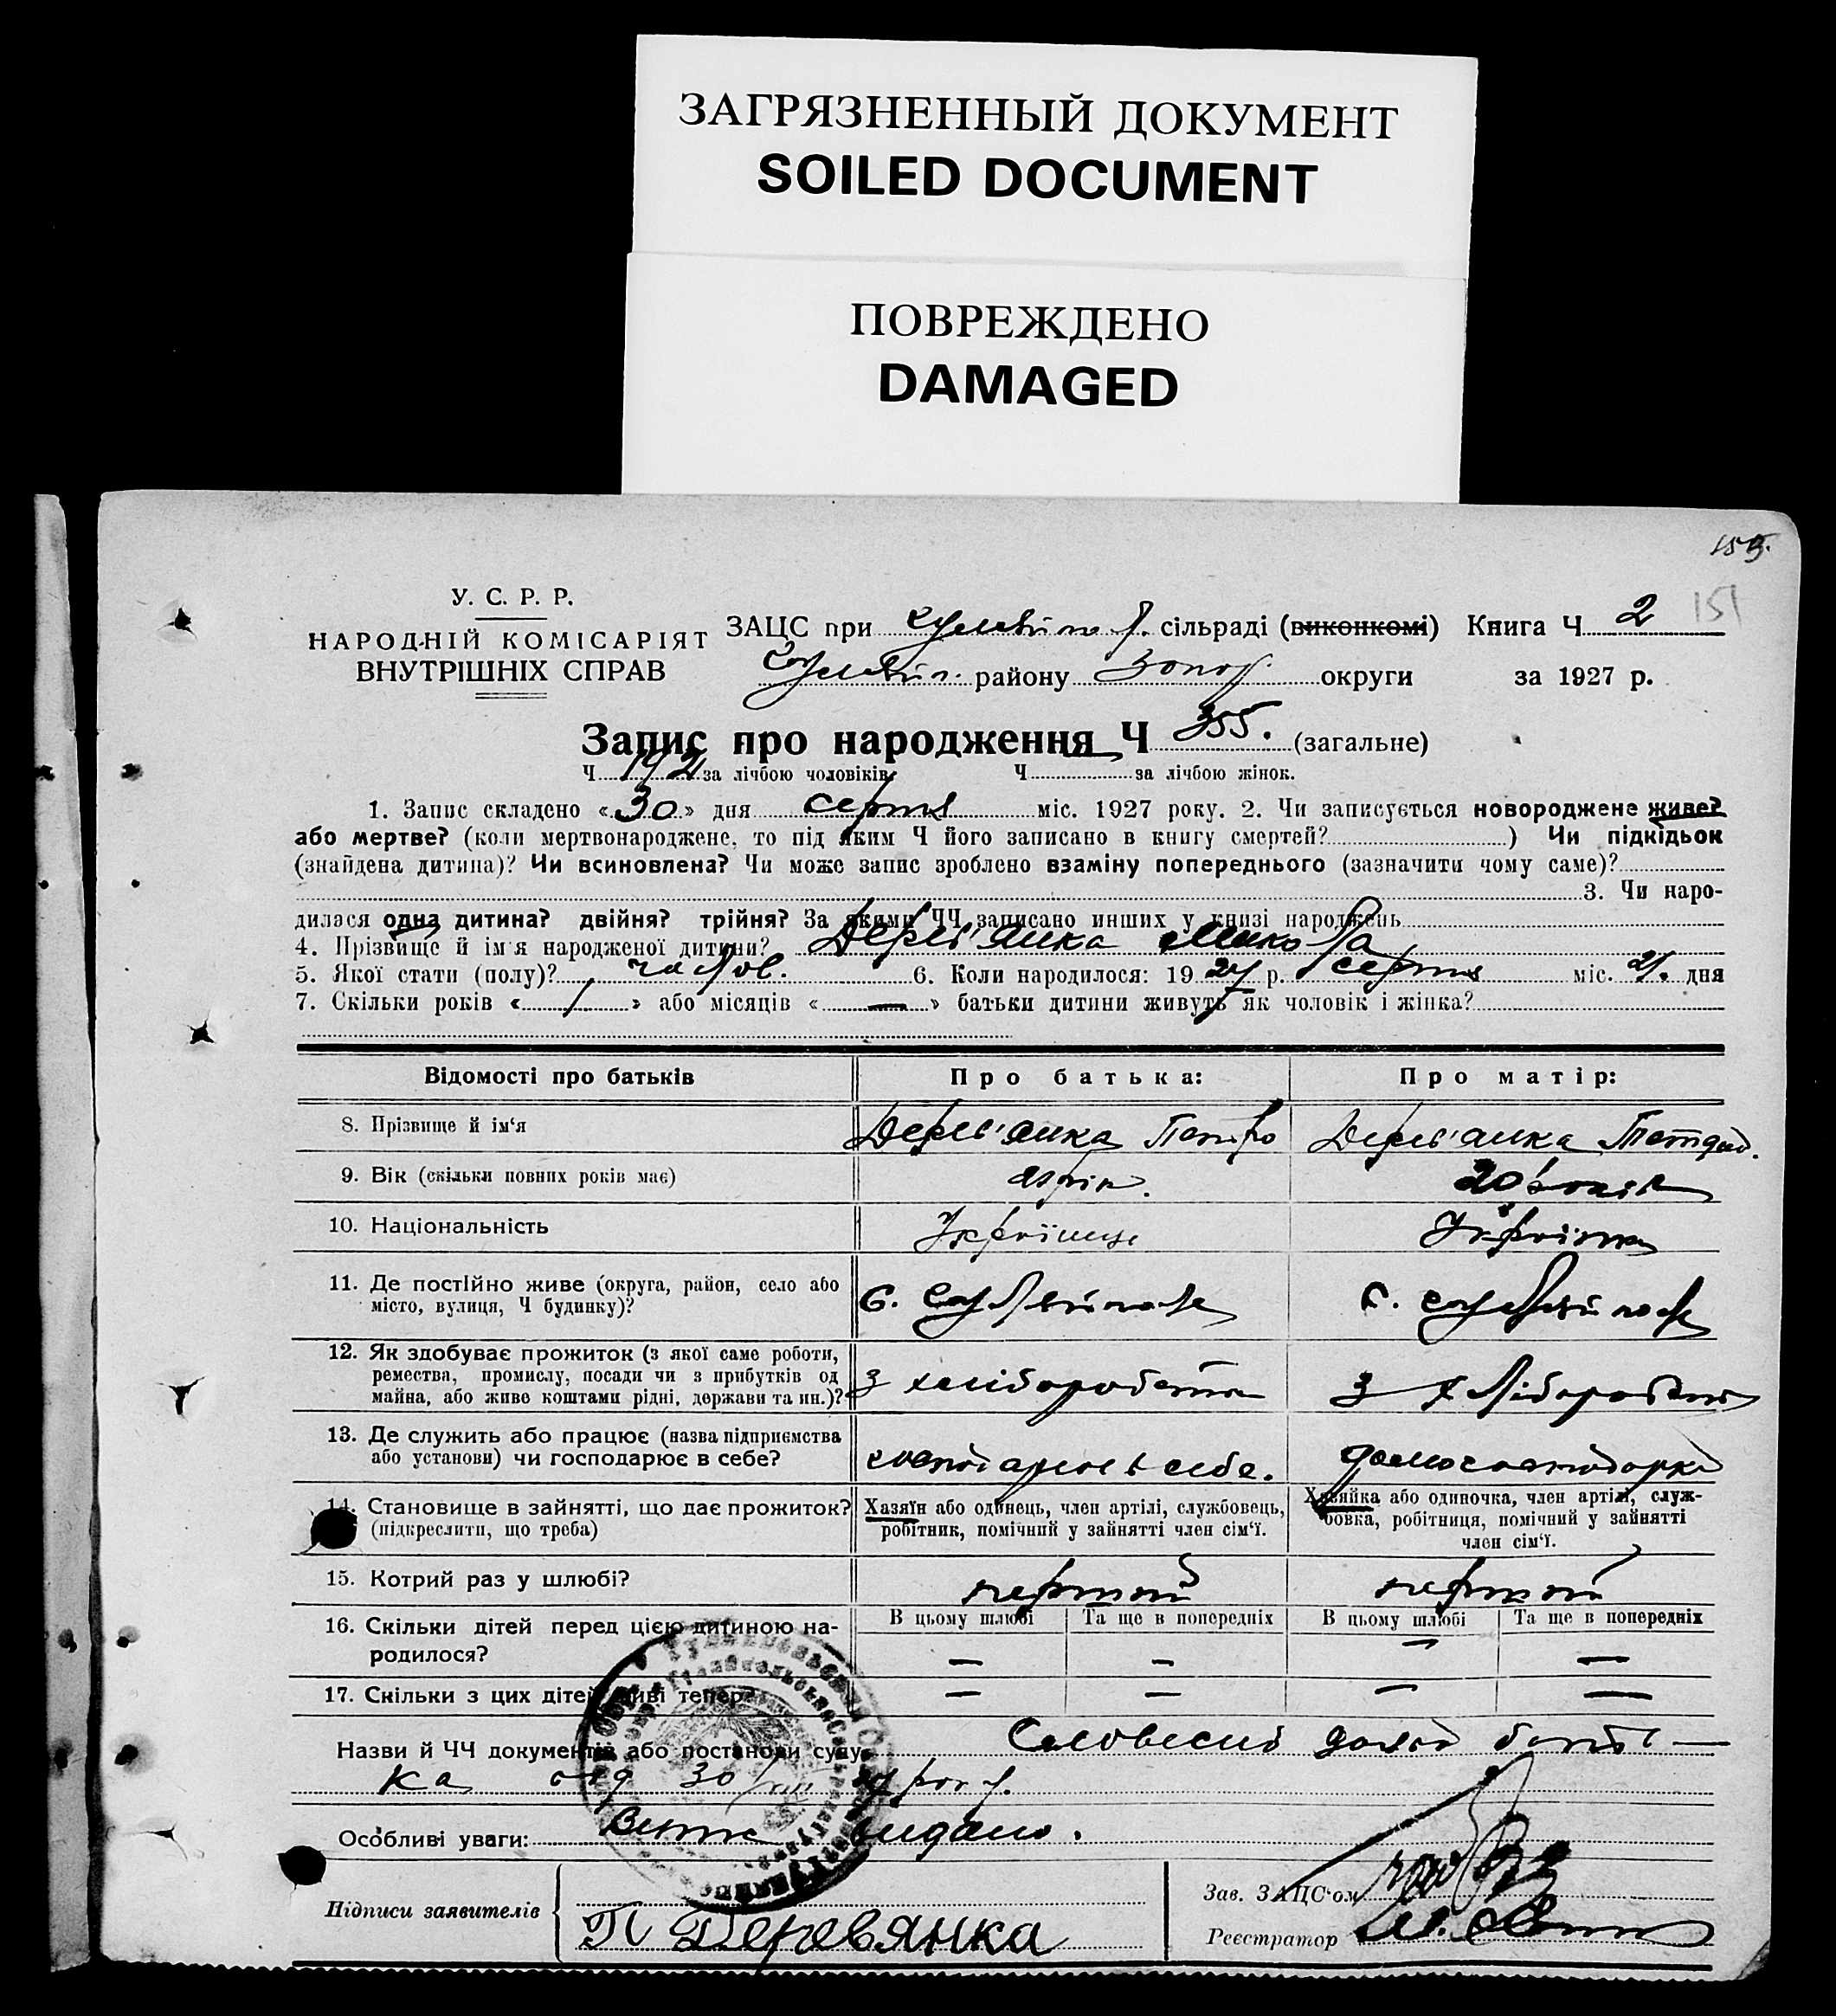 ЗАГРЯЗНЕННЫЙ ДОКУМЕНТ
SOILED DOCUMENT
ПОВРЕЖДЕНО
DAMAGED
155.
151
У. С. Р. Р.
НАРОДНІЙ КОМІСАРІЯТ
ВНУТРІШНІХ СПРАВ
ЗАЦС при сільраді (виконкомі) Книга Ч 2
району Запор. округи за 1927 р.
Запис про народження Ч 355. (загальне)
Ч 192 за лічбою чоловіків Ч за лічбою жінок.
1. Запис складено «30» дня серпня міс. 1927 року. 2. Чи записується новороджене живе?
або мертве? (коли мертвонароджене, то під яким Ч його записано в книгу смертей? ) Чи підкідьок
(знайдена дитина)? Чи всиновлена? Чи може запис зроблено взаміну попереднього (зазначити чому саме)?
3. Чи наро-
дилася одна дитина? двійня? трійня? За якими ЧЧ записано инших у книзі народжень
4. Прізвище й ім'я народженої дитини? Дерев'янка Микола
5. Якої стати (полу)? чолов. 6. Коли народилося: 1927 р. серпня міс. 21. дня
7. Скільки років «1» або місяців «—» батьки дитини живуть як чоловік і жінка?
Відомості про батьків Про батька: Про матір:
8. Прізвище й ім'я Дерев'янка Петро Дерев'янка
9. Вік (скільки повних років має) 20 років
10. Національність Українець Українка
11. Де постійно живе (округа, район, село або
місто, вулиця, Ч будинку)? с. Гуляйполе с. Гуляйполе
12. Як здобуває прожиток (з якої саме роботи,
ремества, промислу, посади чи з прибутків од
майна, або живе коштами рідні, держави та ин.)? З хліборобства З хліборобства
13. Де служить або працює (назва підприємства
або установи) чи господарює в себе? господарює в себе. домогосподарка
14. Становище в зайнятті, що дає прожиток? Хазяїн або одинець, член артілі, службовець, Хазяйка або одиночка, член артілі, служ-
(підкреслити, що треба) робітник, помічний у зайнятті член сім'ї. бовка, робітниця, помічний у зайнятті
член сім'ї.
15. Котрий раз у шлюбі? первий первий
16. Скільки дітей перед цією дитиною на- В цьому шлюбі Та ще в попередніх В цьому шлюбі Та ще в попередніх
родилося? — — — —
17. Скільки з цих дітей живі тепер? — — — —
Назви й ЧЧ документів або постанови суду Словесна заява бать-
ка від 30/VIII 27 року.
Особливі уваги: Витяг видано.
Підписи заявителів П Деревянка
Зав. ЗАЦС'ом
Реєстратор